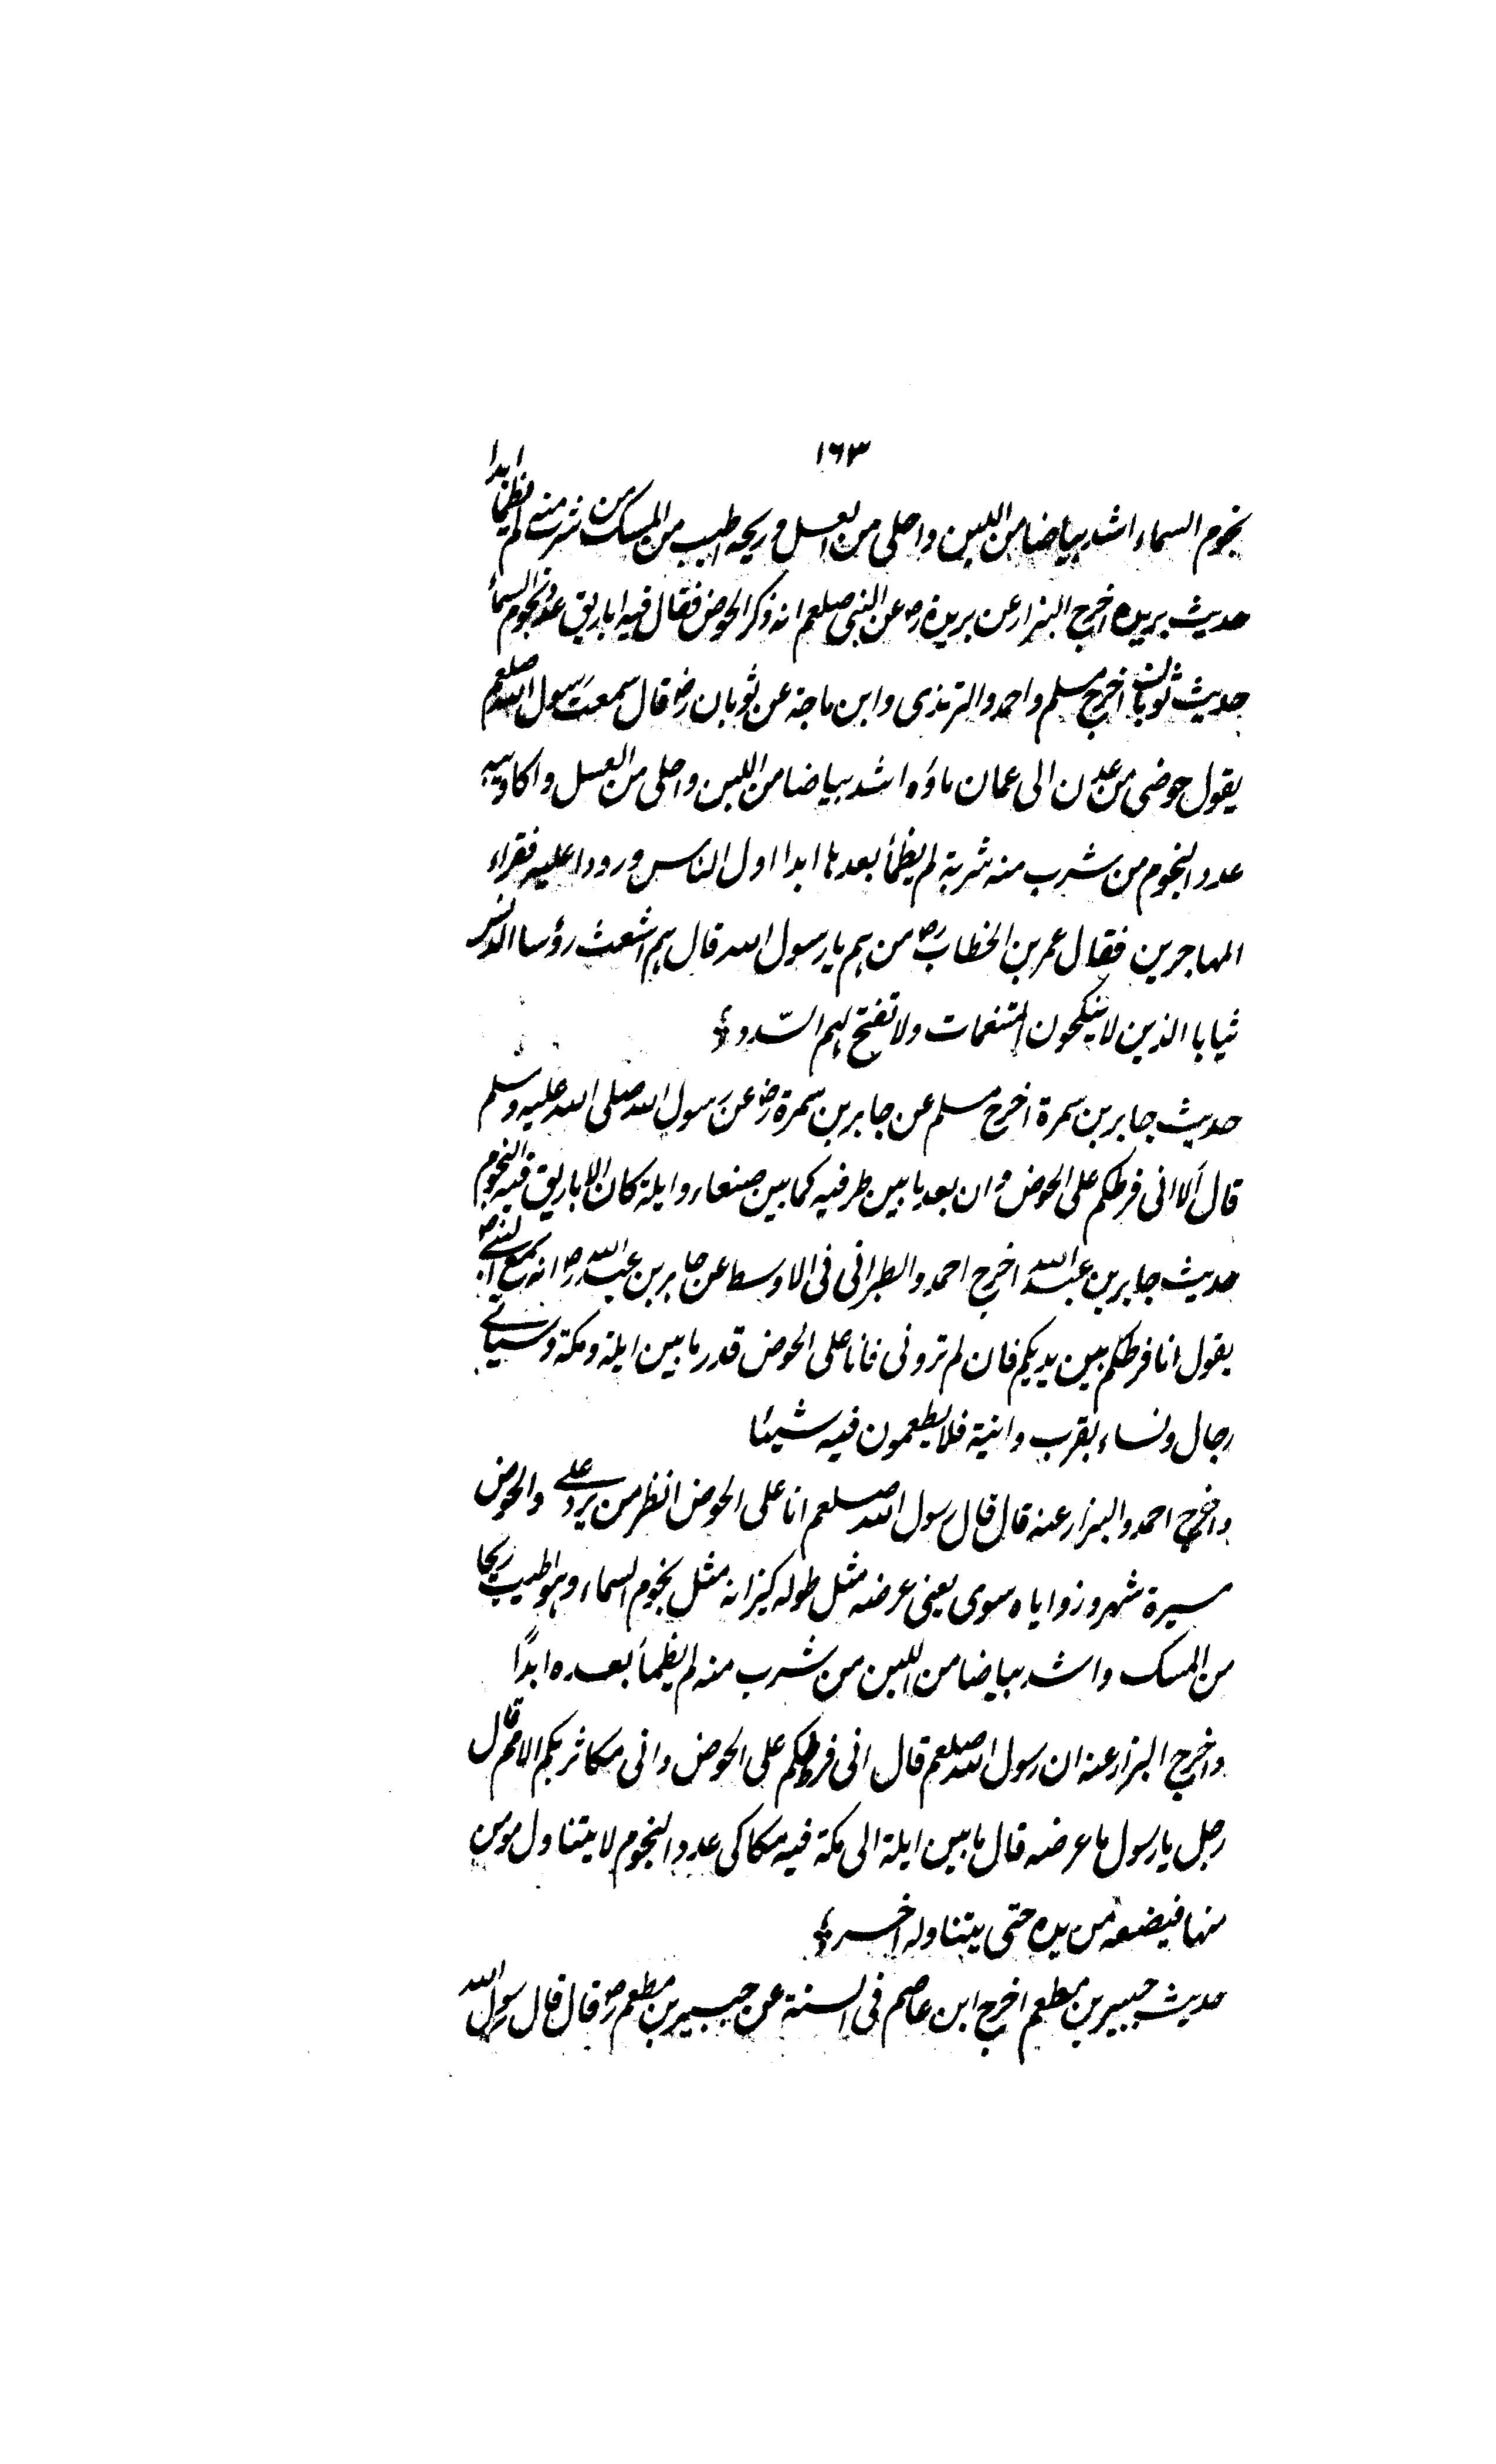 ١٦٣
نجوم السماء اشد بياضا من اللبن واحلى من العسل وريحه اطيب من المسك من شرب منه لم يظمأ ابدا
حديث بريده اخرج البزار عن بريدة رض عن النبى صلعم انه ذكر الحوض فقال فيه اباريق عدد نجوم السماء
حديث ثوبان اخرج مسلم واحمد والترمذى وابن ماجة عن ثوبان رض قال سمعت رسول الله صلعم
يقول حوضى من عدن الى عمان ماؤه اشد بياضا من اللبن واحلى من العسل واكاويبه
عدد النجوم من شرب منه شربة لم يظمأ بعدها ابدا اول الناس ورودا عليه فقراء
المهاجرين فقال عمر بن الخطاب رض من هم يا رسول الله قال هم اشعث رؤسا الدنس
ثيابا الذين لا ينكحون المتنعمات ولا تفتح لهم السّدد
حديث جابر بن سمرة اخرج مسلم عن جابر بن سمرة رض عن رسول الله صلى الله عليه وسلم
قال الا انى فرطكم على الحوض وان بعد ما بين طرفيه كما بين صنعاء وايلة كان الاباريق فيه النجوم
حديث جابر بن عبد الله اخرج احمد والطبرانى فى الاوسط عن جابر بن عبد الله رض انه سمع النبى ص
يقول انا فرطكم بين يديكم فان لم ترونى فانا على الحوض قدر ما بين ايلة ومكة وسياتى
رجال ونساء بقرب وانية فلا يطعمون فيه شيئا
واخرج احمد والبزار عنه قال قال رسول الله صلعم انا على الحوض انظر من يرد على والحوض
مسيرة شهر وزواياه سوى يعنى عرضه مثل طوله كيزانه مثل نجوم السماء وهو اطيب ريحا
من المسك واشد بياضا من اللبن من شرب منه لم يظمأ بعده ابدًا
واخرج البزار عنه ان رسول الله صلعم قال انى فرطكم على الحوض وانى مكاثر بكم الامم قال
رجل يا رسول ما عرضه قال ما بين ايلة الى مكة فيه مكاكى عدد النجوم لا يتناول مومن
منها فيضعه من يده حتى يتناوله اخر
حديث جبير بن مطعم اخرج ابن عاصم فى السنة عن جبير بن مطعم رض قال قال رسول الله